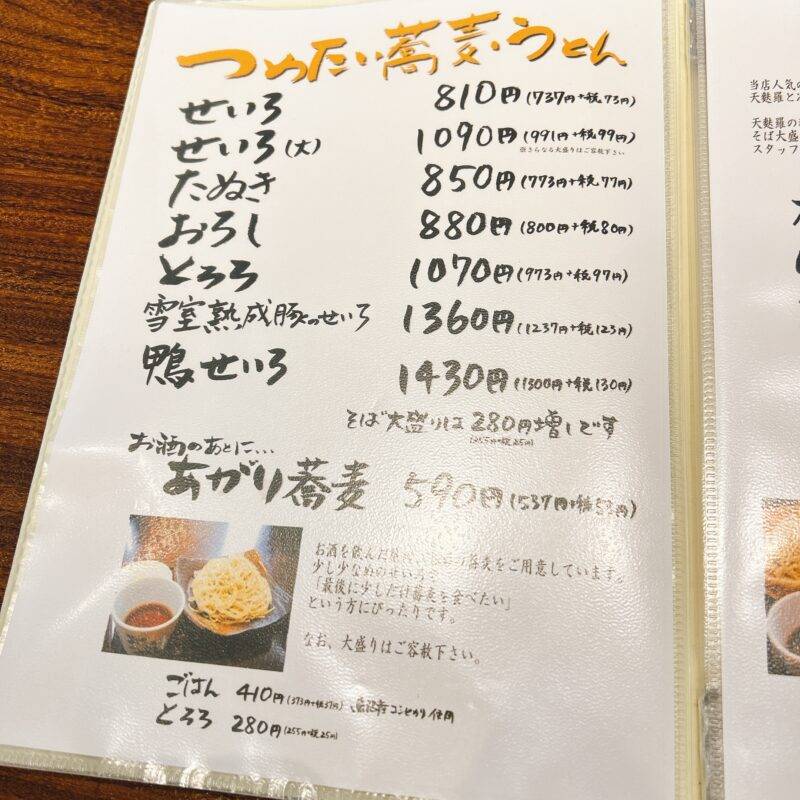 つめたい蕎麦・うどん
せいろ 810円(737円+税73円)
せいろ(大) 1090円(991円+税99円)
※さらなる大盛りはご容赦下さい
たぬき 850円(773円+税77円)
おろし 880円(800円+税80円)
とろろ 1070円(973円+税97円)
雪室熟成豚のせいろ 1360円(1237円+税123円)
鴨せいろ 1430円(1300円+税130円)
そば大盛りは280円増しです
(255円+税25円)
お酒のあとに...
あがり蕎麦 590円(537円+税53円)
お酒を飲んだ の蕎麦をご用意しています。
少し少なめのせいろ
「最後に少しだけ蕎麦を食べたい」
という方にぴったりです。
なお、大盛りはご容赦下さい。
ごはん 410円(373円+税37円) 魚沼産コシヒカリ使用
とろろ 280円(255円+税25円)
当店人気の
天麩羅と
天麩羅の
そば大盛
スタッフ